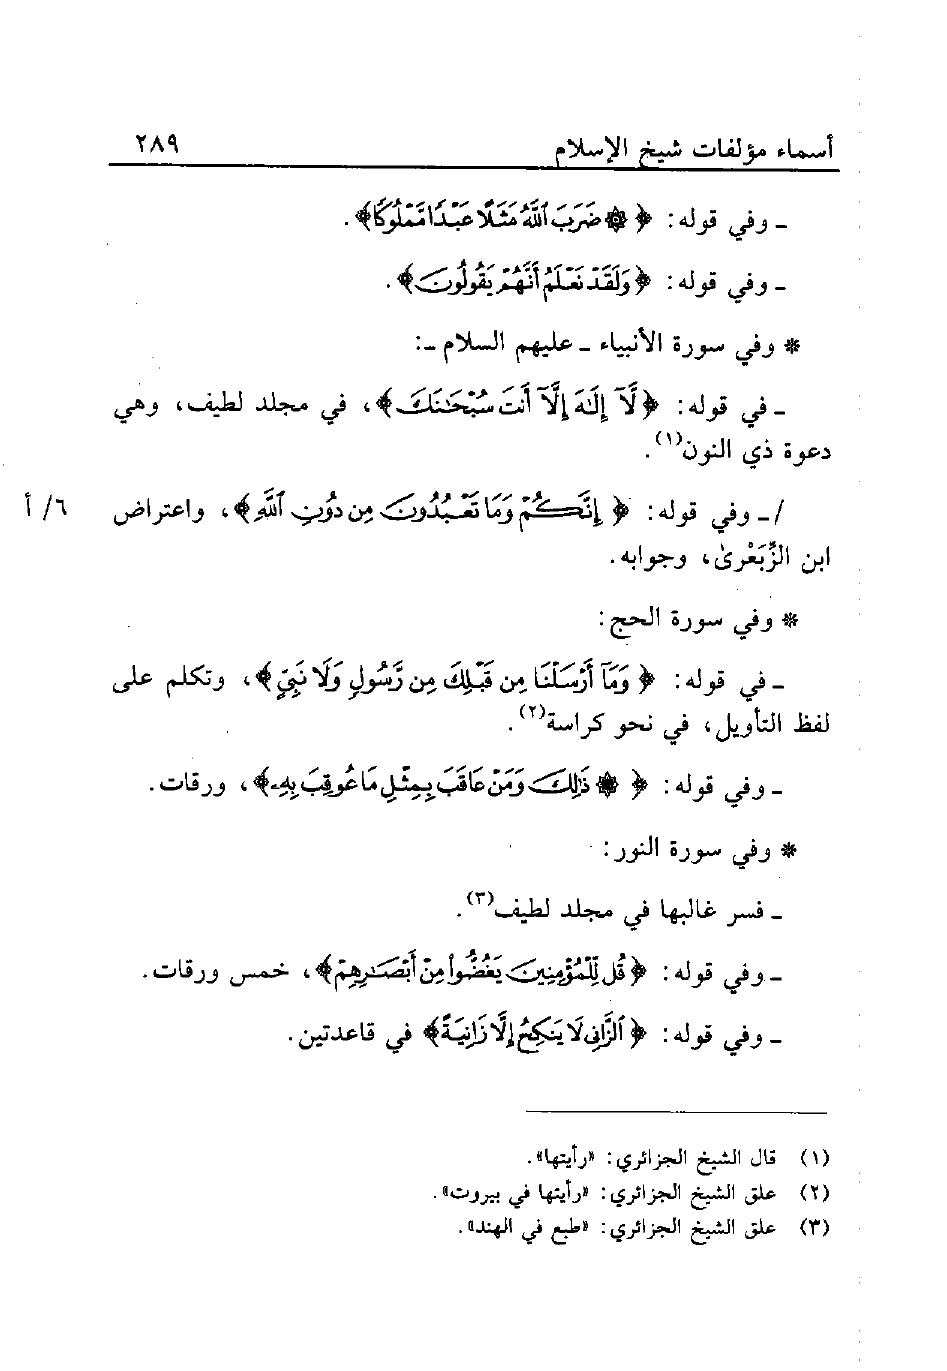 أسماء مؤلفات شيخ الإسلام ٢٨٩
ـ وفي قوله: ﴿ ۞ ضَرَبَ ٱللَّهُ مَثَلًا عَبْدًا مَّمْلُوكًا﴾.
ـ وفي قوله: ﴿وَلَقَدْ نَعْلَمُ أَنَّهُمْ يَقُولُونَ﴾.
* وفي سورة الأنبياء ـ عليهم السلام ـ:
ـ في قوله: ﴿لَّآ إِلَٰهَ إِلَّآ أَنتَ سُبْحَٰنَكَ﴾، في مجلد لطيف، وهي
دعوة ذي النون(١).
/ ـ وفي قوله: ﴿إِنَّكُمْ وَمَا تَعْبُدُونَ مِن دُونِ ٱللَّهِ﴾، واعتراض ٦/ أ
ابن الزِّبَعْرىٰ، وجوابه.
* وفي سورة الحج:
ـ في قوله: ﴿وَمَآ أَرْسَلْنَا مِن قَبْلِكَ مِن رَّسُولٍ وَلَا نَبِيٍّ﴾، وتكلم على
لفظ التأويل، في نحو كراسة(٢).
ـ وفي قوله: ﴿ ۞ ذَٰلِكَ وَمَنْ عَاقَبَ بِمِثْلِ مَا عُوقِبَ بِهِۦ﴾، ورقات.
* وفي سورة النور:
ـ فسر غالبها في مجلد لطيف(٣).
ـ وفي قوله: ﴿قُل لِّلْمُؤْمِنِينَ يَغُضُّوا۟ مِنْ أَبْصَٰرِهِمْ﴾، خمس ورقات.
ـ وفي قوله: ﴿ٱلزَّانِى لَا يَنكِحُ إِلَّا زَانِيَةً﴾ في قاعدتين.
(١) قال الشيخ الجزائري: «رأيتها».
(٢) علق الشيخ الجزائري: «رأيتها في بيروت».
(٣) علق الشيخ الجزائري: «طبع في الهند».